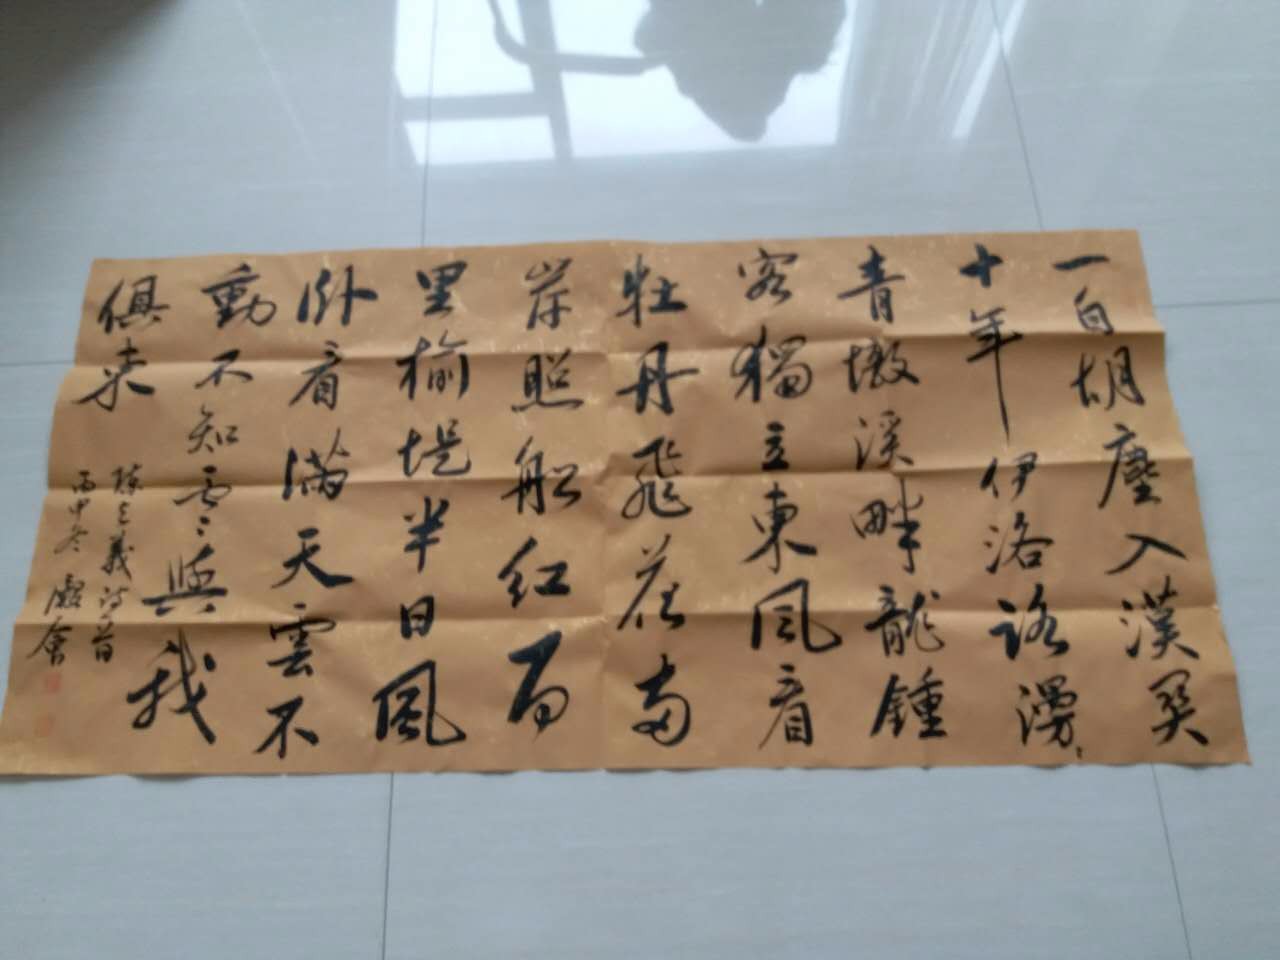 一自胡塵入漢關
十年伊洛路漫〻
青墩溪畔龍鍾
客獨立東風看
牡丹飛花兩
岸照船紅百
里榆堤半日風
卧看滿天雲不
動不知云與我
俱東
陳与義詩二首
丙申冬